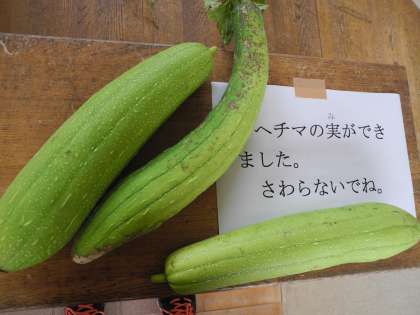 ヘチマの実ができ
ました。
さわらないでね。